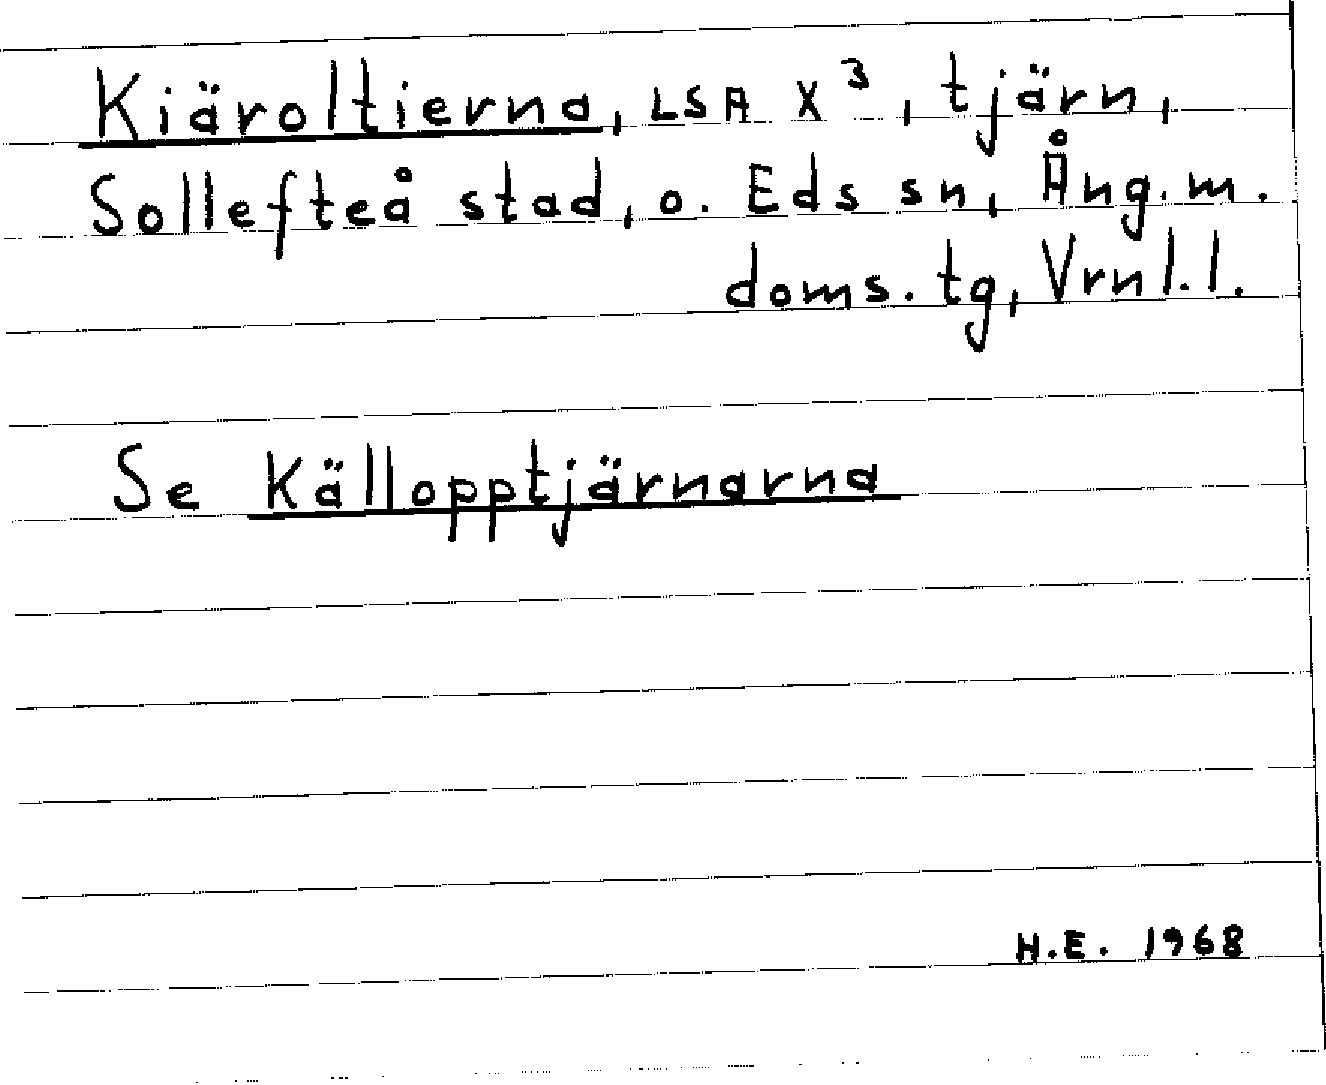 Kiäroltierna, LSA X³, tjärn,
Sollefteå stad, o. Eds sn, Ång.m.
doms. tg, Vrnl.l.
Se Källopptjärnarna
H.E. 1968